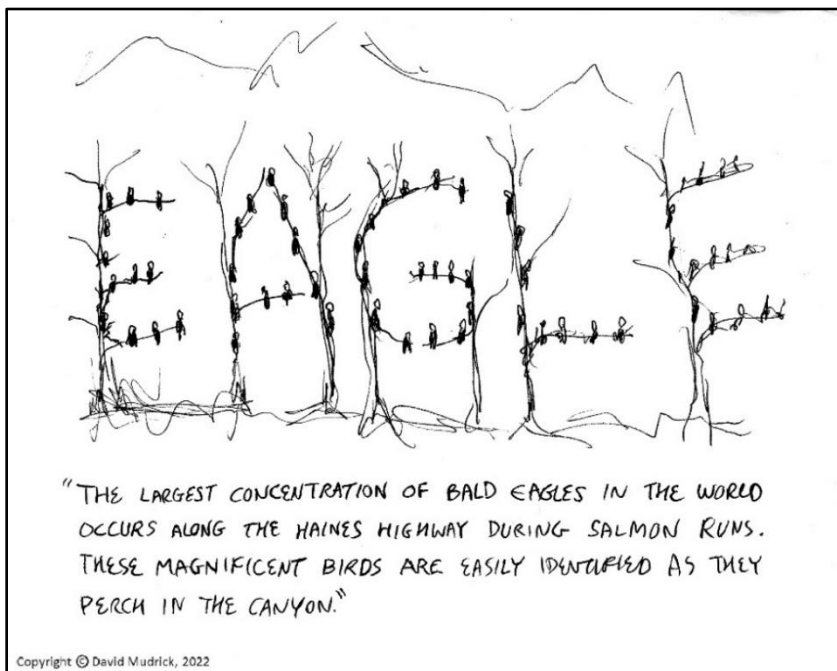 EAGLE
"THE LARGEST CONCENTRATION OF BALD EAGLES IN THE WORLD
OCCURS ALONG THE HAINES HIGHWAY DURING SALMON RUNS.
THESE MAGNIFICENT BIRDS ARE EASILY IDENTIFIED AS THEY
PERCH IN THE CANYON."
Copyright © David Mudrick, 2022